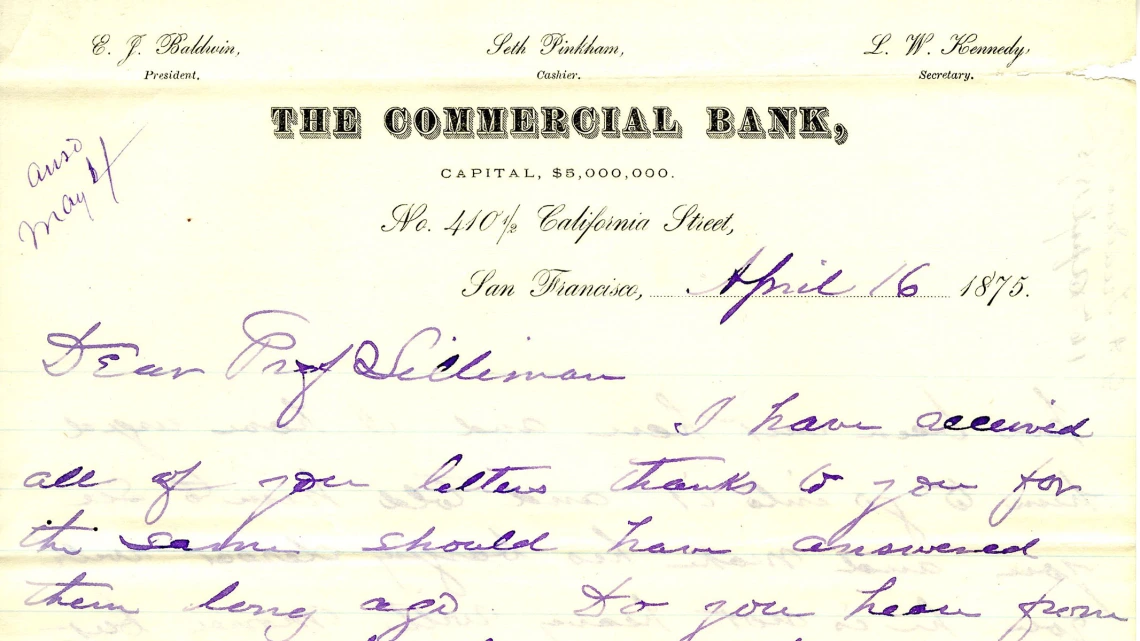 E. J. Baldwin, Seth Pinkham, L. W. Kennedy,
President. Cashier. Secretary.
THE COMMERCIAL BANK,
CAPITAL, $5,000,000.
ans
May 4
No. 410½ California Street,
San Francisco, April 16 1875.
Dear Prof Silliman
I have received
all of you letters thanks to you for
the same should have answered
them long ago. Do you hear from